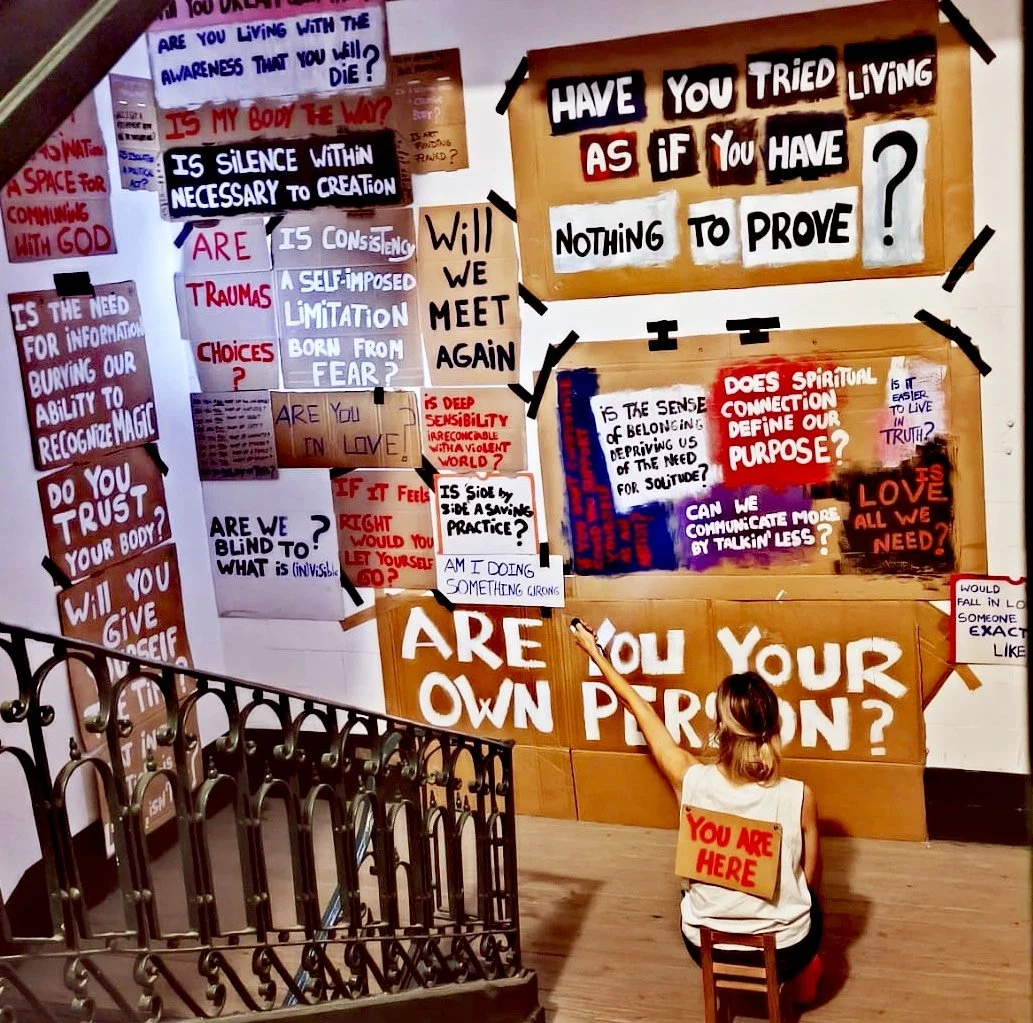 ARE YOU LIVING WITH THE
AWARENESS THAT YOU WILL
DIE?
IS MY BODY THE WAY?
IS SILENCE WITHIN
NECESSARY TO CREATION
IS ART
FUNDING
FLAWED?
A SPACE FOR
COMMUNING
WITH GOD
HAVE YOU TRIED LIVING
AS IF YOU HAVE
NOTHING TO PROVE?
ARE
TRAUMAS
CHOICES
?
IS CONSISTENCY
A SELF-IMPOSED
LIMITATION
BORN FROM
FEAR?
WILL
WE
MEET
AGAIN
IS THE NEED
FOR INFORMATION
BURYING OUR
ABILITY TO
RECOGNIZE MAGIC
ARE YOU
IN LOVE?
IS DEEP
SENSIBILITY
IRRECONCIABLE
WITH A VIOLENT
WORLD?
IS THE SENSE
OF BELONGING
DEPRIVING US
OF THE NEED
FOR SOLITUDE?
DOES SPIRITUAL
CONNECTION
DEFINE OUR
PURPOSE?
IS IT
EASIER
TO LIVE
IN
TRUTH?
CAN WE
COMMUNICATE MORE
BY TALKIN' LESS?
IS
LOVE
ALL WE
NEED?
DO YOU
TRUST
YOUR BODY?
ARE WE
BLIND TO?
WHAT IS (IN)VISIBLE
IF IT FEELS
RIGHT
WOULD YOU
LET YOURSELF
GO?
IS SIDE by
SIDE A SAVING
PRACTICE?
AM I DOING
SOMETHING WRONG
WILL YOU
GIVE
WOULD
FALL IN LO
SOMEONE
EXACT
LIKE
ARE YOU YOUR
OWN PERSON?
YOU ARE
HERE